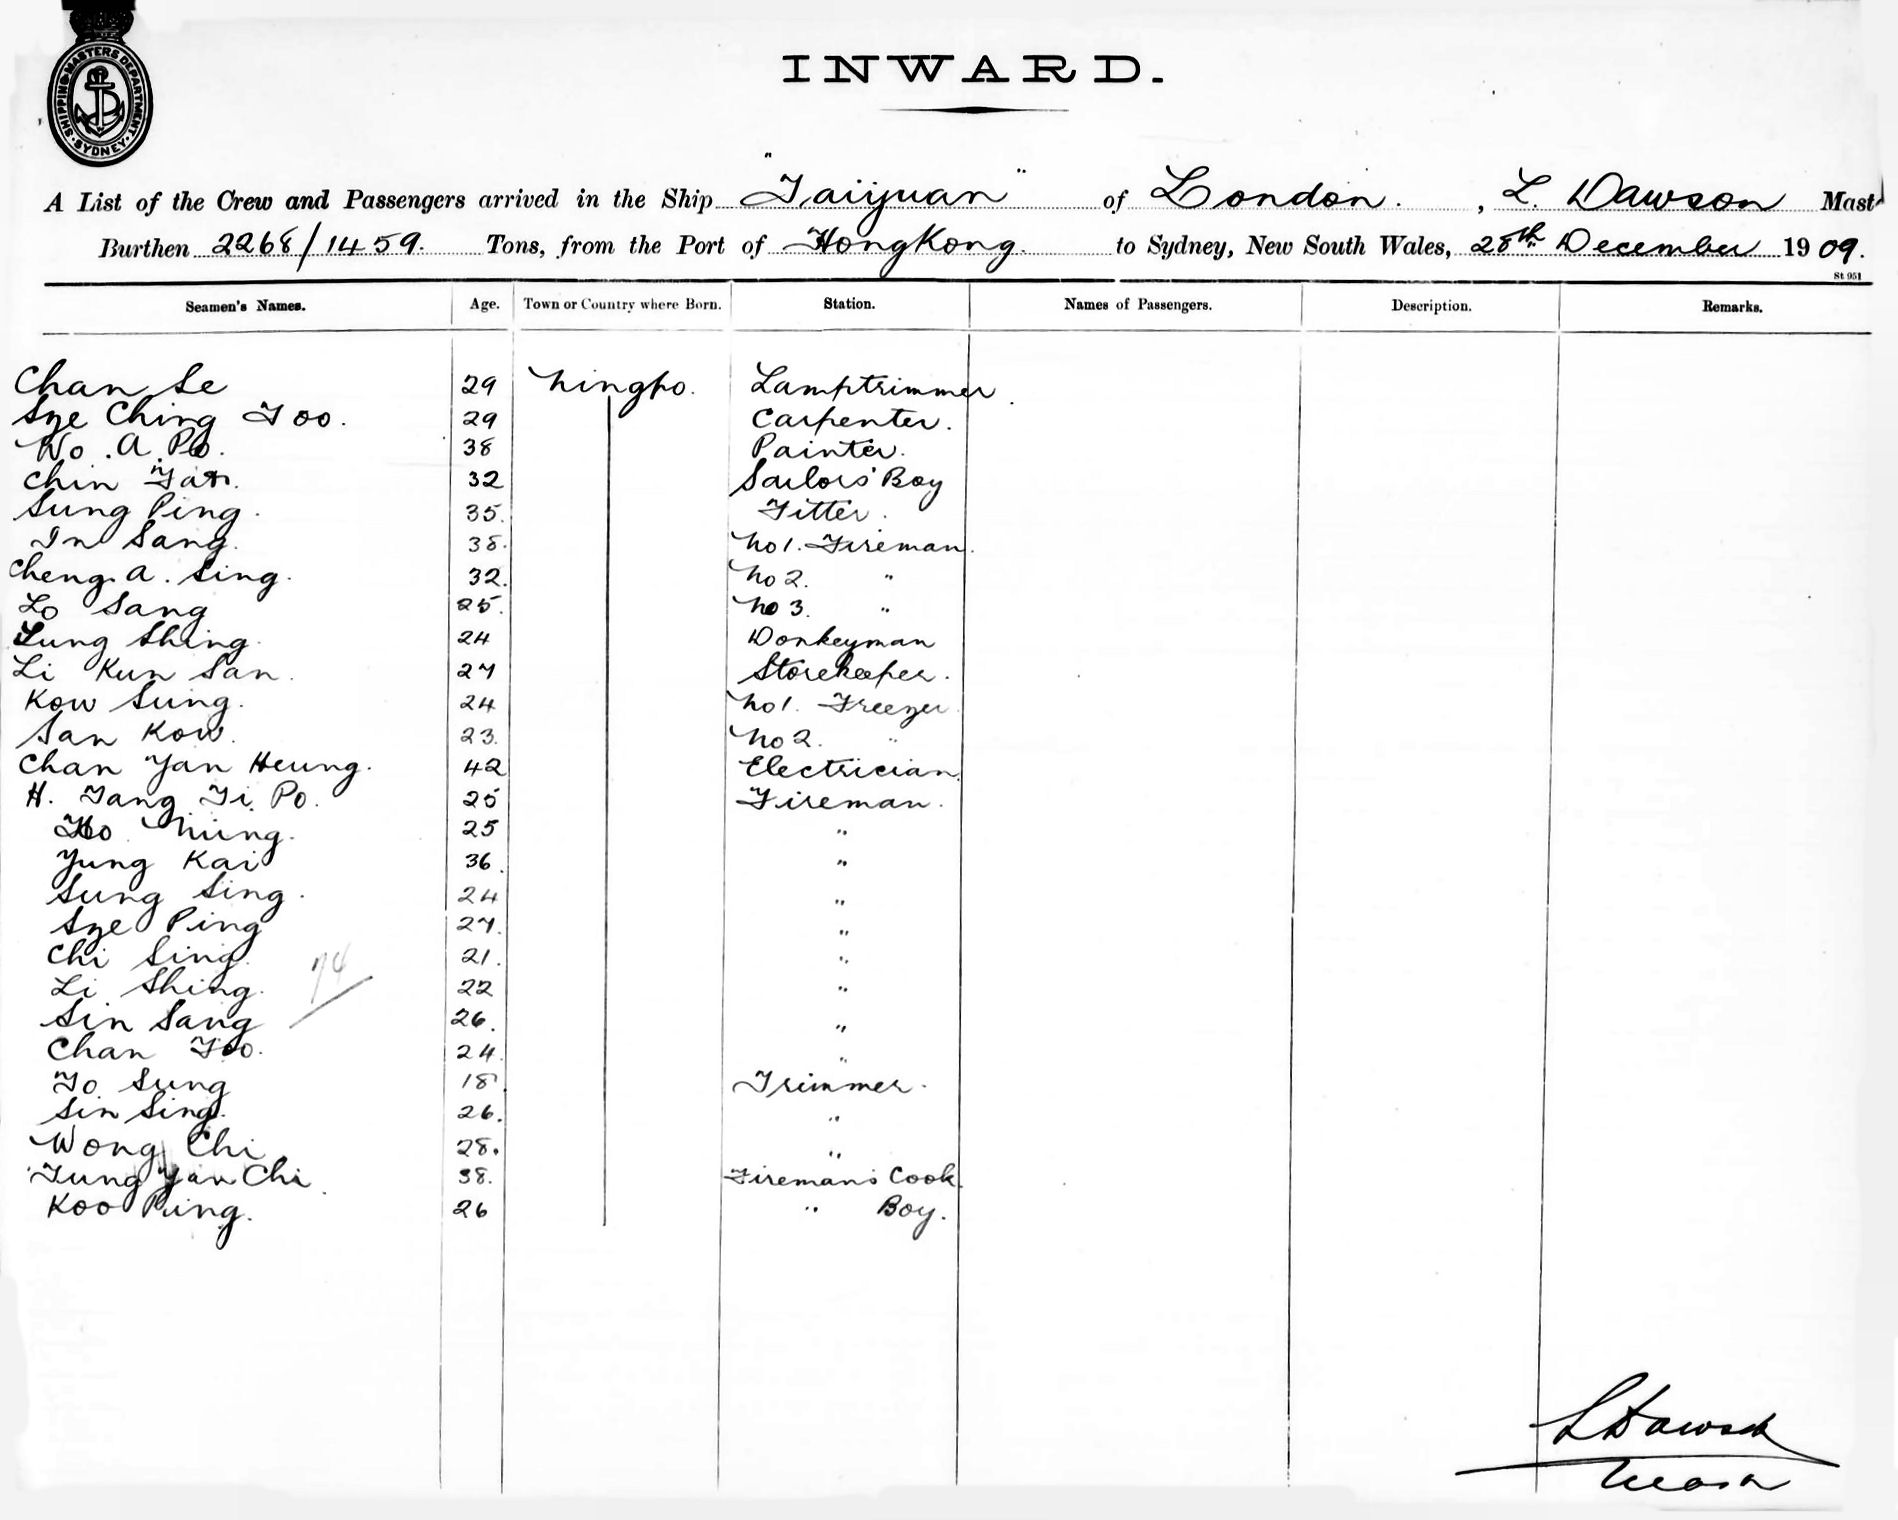 SHIPPING MASTERS DEPARTMENT SYDNEY
INWARD.
A List of the Crew and Passengers arrived in the Ship "Taiyuan" of London. , L. Dawson Mast
Burthen 2268/1459. Tons, from the Port of HongKong. to Sydney, New South Wales, 28th December 1909.
St 951
Seamen's Names. Age. Town or Country where Born. Station. Names of Passengers. Description. Remarks.
Chan Se 29 Ningpo. Lamptrimmer.
Sze Ching Foo. 29 Carpenter.
Wo. A. Po. 38 Painter.
Chin 32 Sailors' Boy
Sung Ping. 35. Fitter.
In Sang. 38. No 1. Fireman.
Cheng. A. Sing. 32. No 2. "
Lo Sang 25. No 3. "
Lung Shing. 24 Donkeyman
Li Kun San. 27 Storekeeper.
Kow Sung. 24 No 1. Freezer
San Kow. 23. No 2. "
Chan Yan Heung. 42 Electrician.
H. Tang Ti. Po. 25 Fireman.
Ho 25 "
Yung Kai 36. "
Sung Sing. 24 "
Sze Ping 27. "
Chi Sing. 21. "
Li Shing. 22 "
74
Sin Sang 26. "
Chan Foo. 24. "
Yo Sung 18. Trimmer.
Sin Sing. 26. "
Wong Chi 28. "
Tung Yan Chi. 38. Fireman's Cook.
Koo Pung. 26 " Boy.
L Dawson